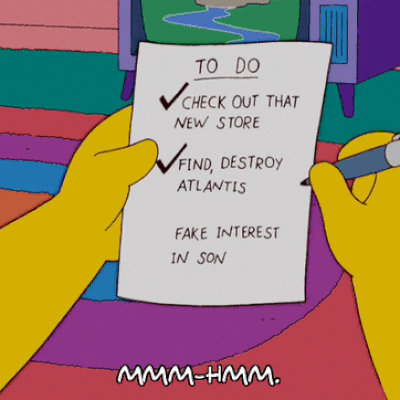 TO DO
✓CHECK OUT THAT
NEW STORE
✓FIND, DESTROY
ATLANTIS
FAKE INTEREST
IN SON
MMM-HMM.